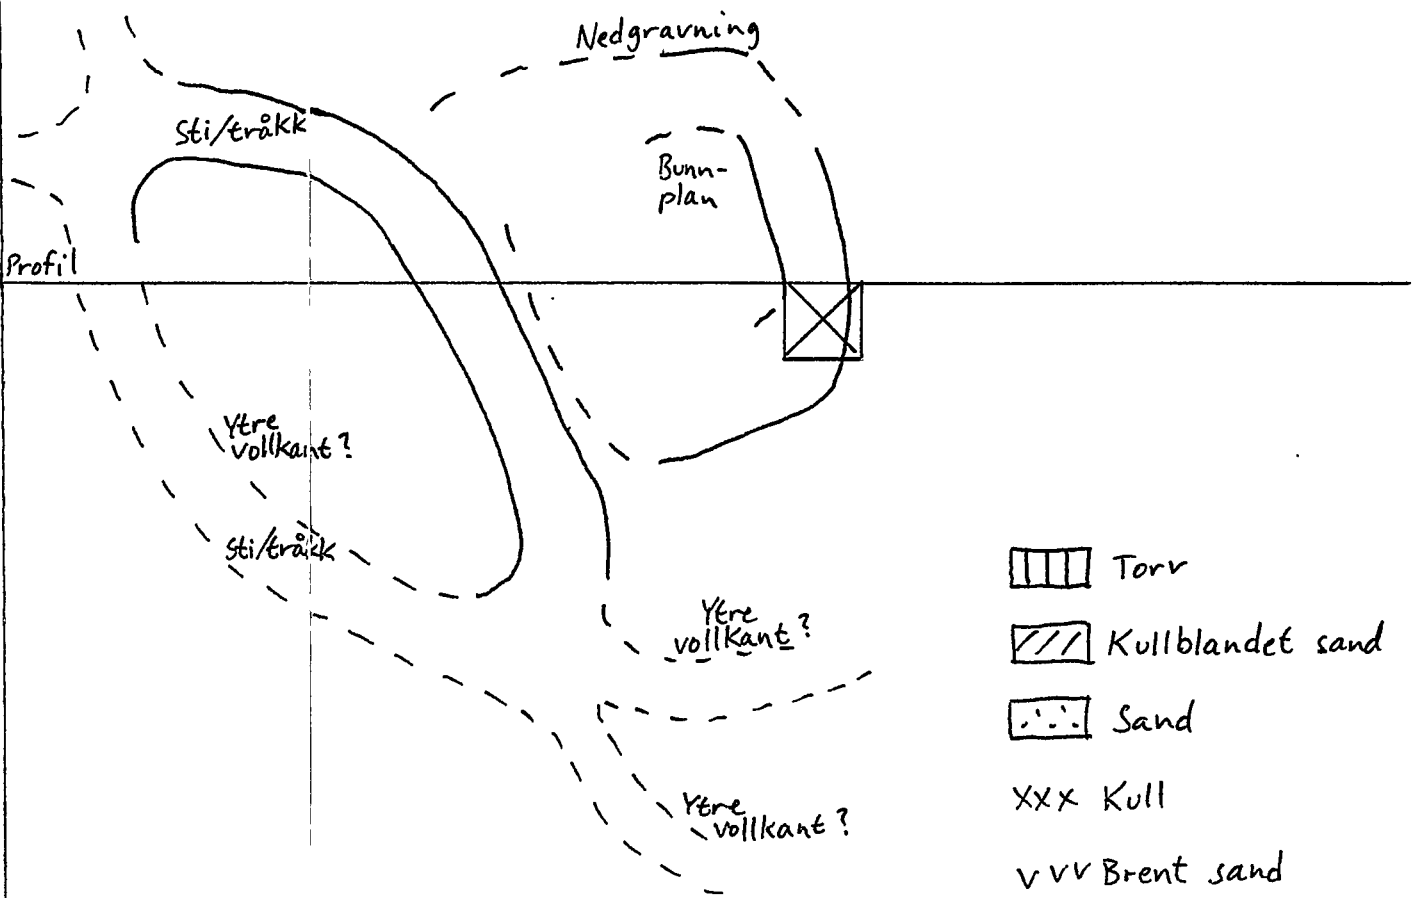 Nedgravning
Sti/tråkk
Bunn-
plan
Profil
Ytre
vollkant?
Sti/tråkk
Ytre
vollkant?
Ytre
vollkant?
Torv
Kullblandet sand
Sand
xxx Kull
v v v Brent sand